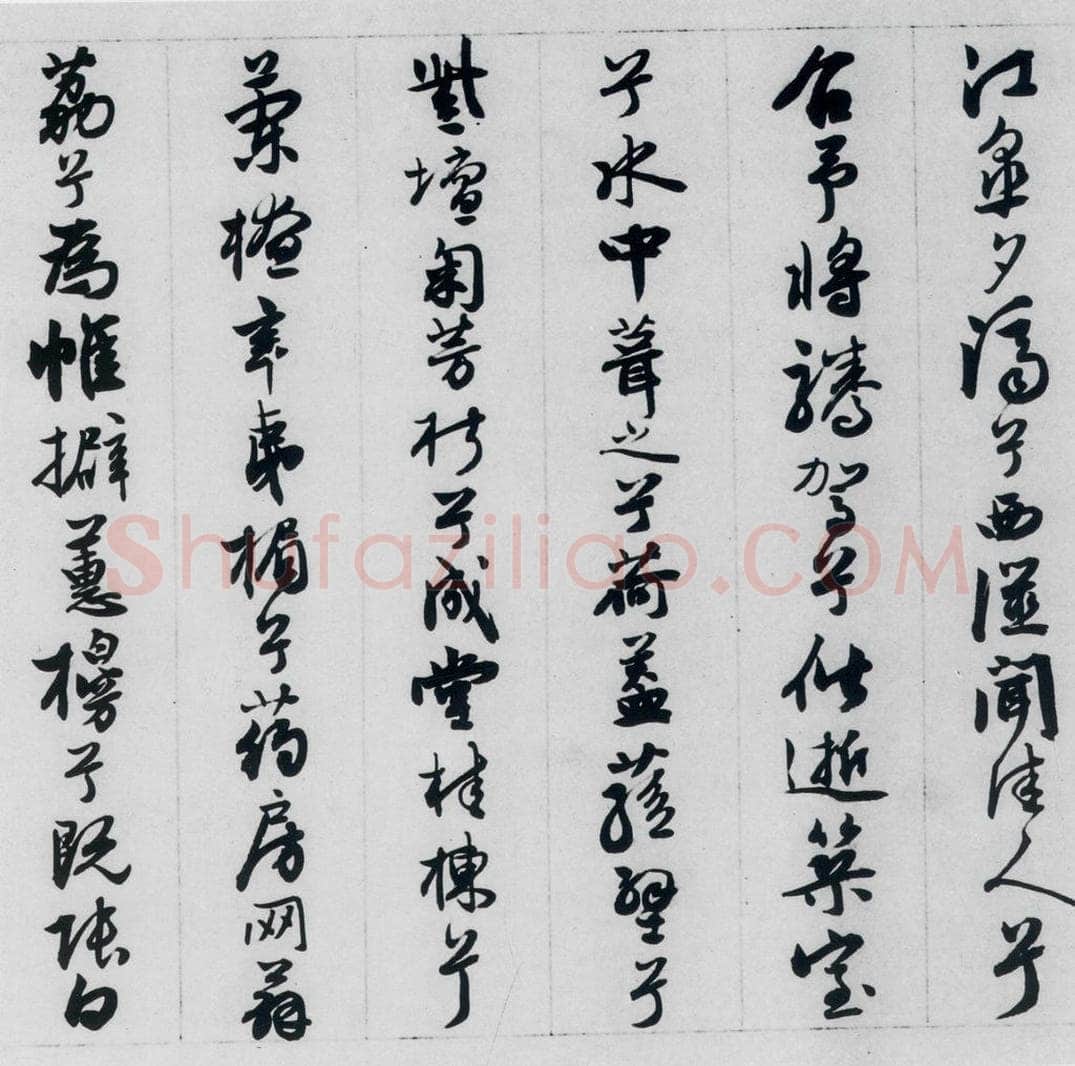 江皋夕濟兮西澨聞佳人兮
召予將騰駕兮偕逝築室
兮水中葺之兮荷蓋蓀壁兮
紫壇匊芳椒兮成堂桂棟兮
蘭橑辛夷楣兮葯房网薜
荔兮為帷擗蕙櫋兮既張白
Shufaziliao.COM